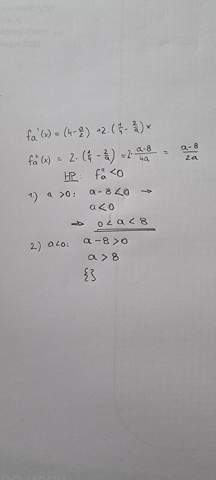 fa'(x) = (4 - a/2) + 2·(1/4 - 2/a)x
fa''(x) = 2·(1/4 - 2/a) = 2·(a-8)/4a = (a-8)/2a
HP: fa'' < 0
1) a > 0: a - 8 < 0 →
a < 0
⇒ 0 < a < 8
2) a < 0: a - 8 > 0
a > 8
{}